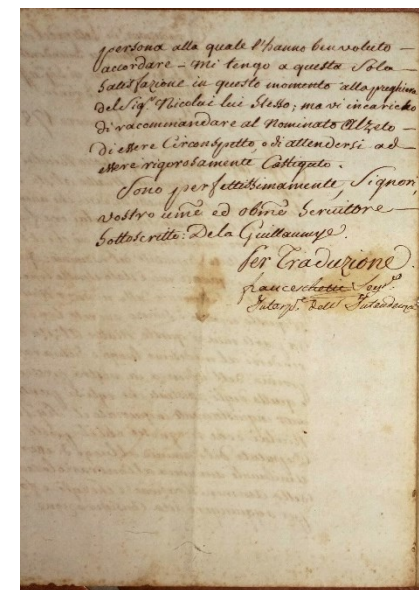 persona alla quale l'hanno ben voluto –
accordare – Mi tengo a questa Sola
Satisfazione in questo momento alla preghiera
del Sigr. Nicolai lui Stesso; ma vi incarico
di raccommandare al Nominato Alzeto –
di essere Circonspetto, o di attendersi ad –
essere rigorosamente Castigato.
Sono perfettissimamente, Signori,
vostro umo. ed obmo. Servitore –
Sottoscritto: De la Guillaumye.
Per Traduzione.
franceschetti
dell' Intendenza